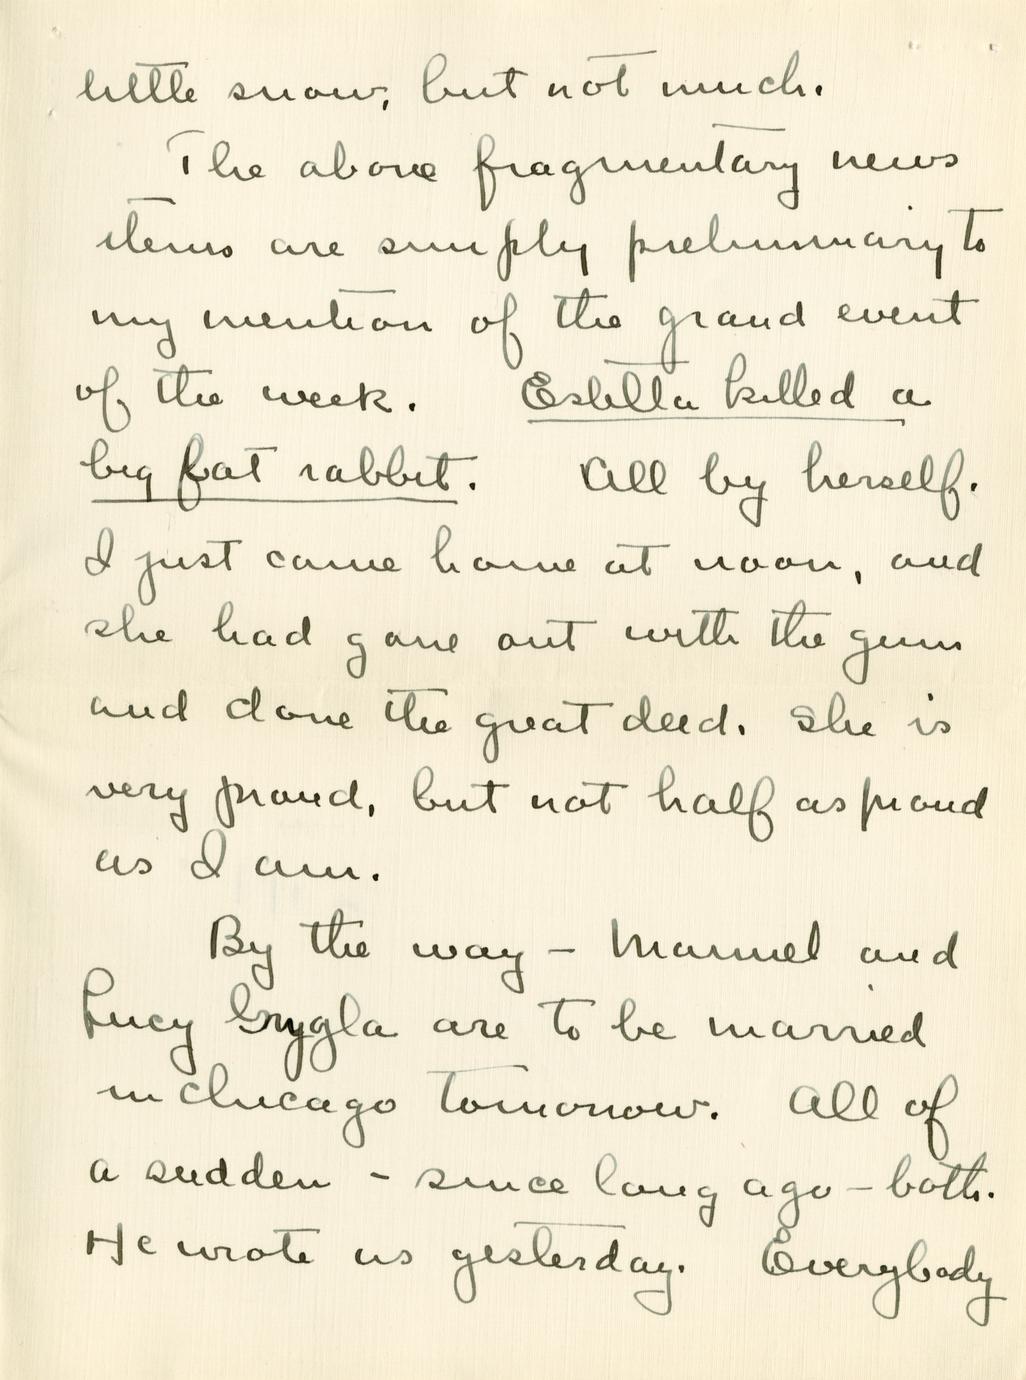 little snow, but not much.
The above fragmentary news
items are simply preliminary to
my mention of the grand event
of the week. Estella killed a
big fat rabbit. All by herself.
I just came home at noon, and
she had gone out with the gun
and done the great deed. She is
very proud, but not half as proud
as I am.
By the way – Manuel and
Lucy Grygla are to be married
in Chicago tomorrow. All of
a sudden – since long ago – both.
He wrote us yesterday. Everybody